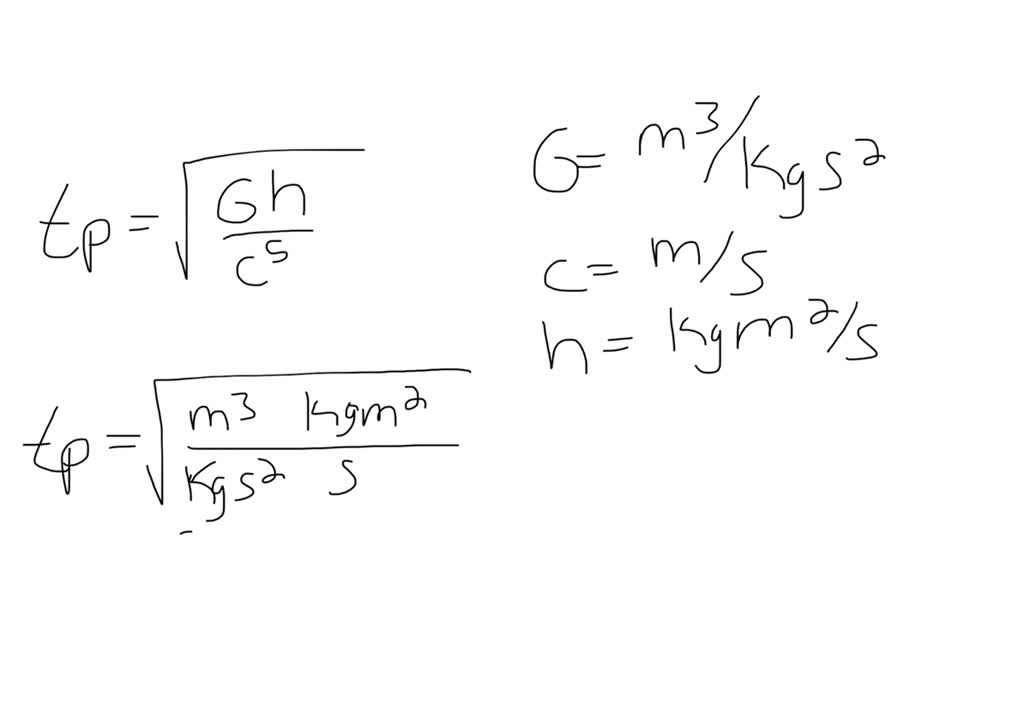 tp = √(Gh / c⁵)
G = m³/kgs²
c = m/s
h = kgm²/s
tp = √(m³ kgm² / kgs² s)